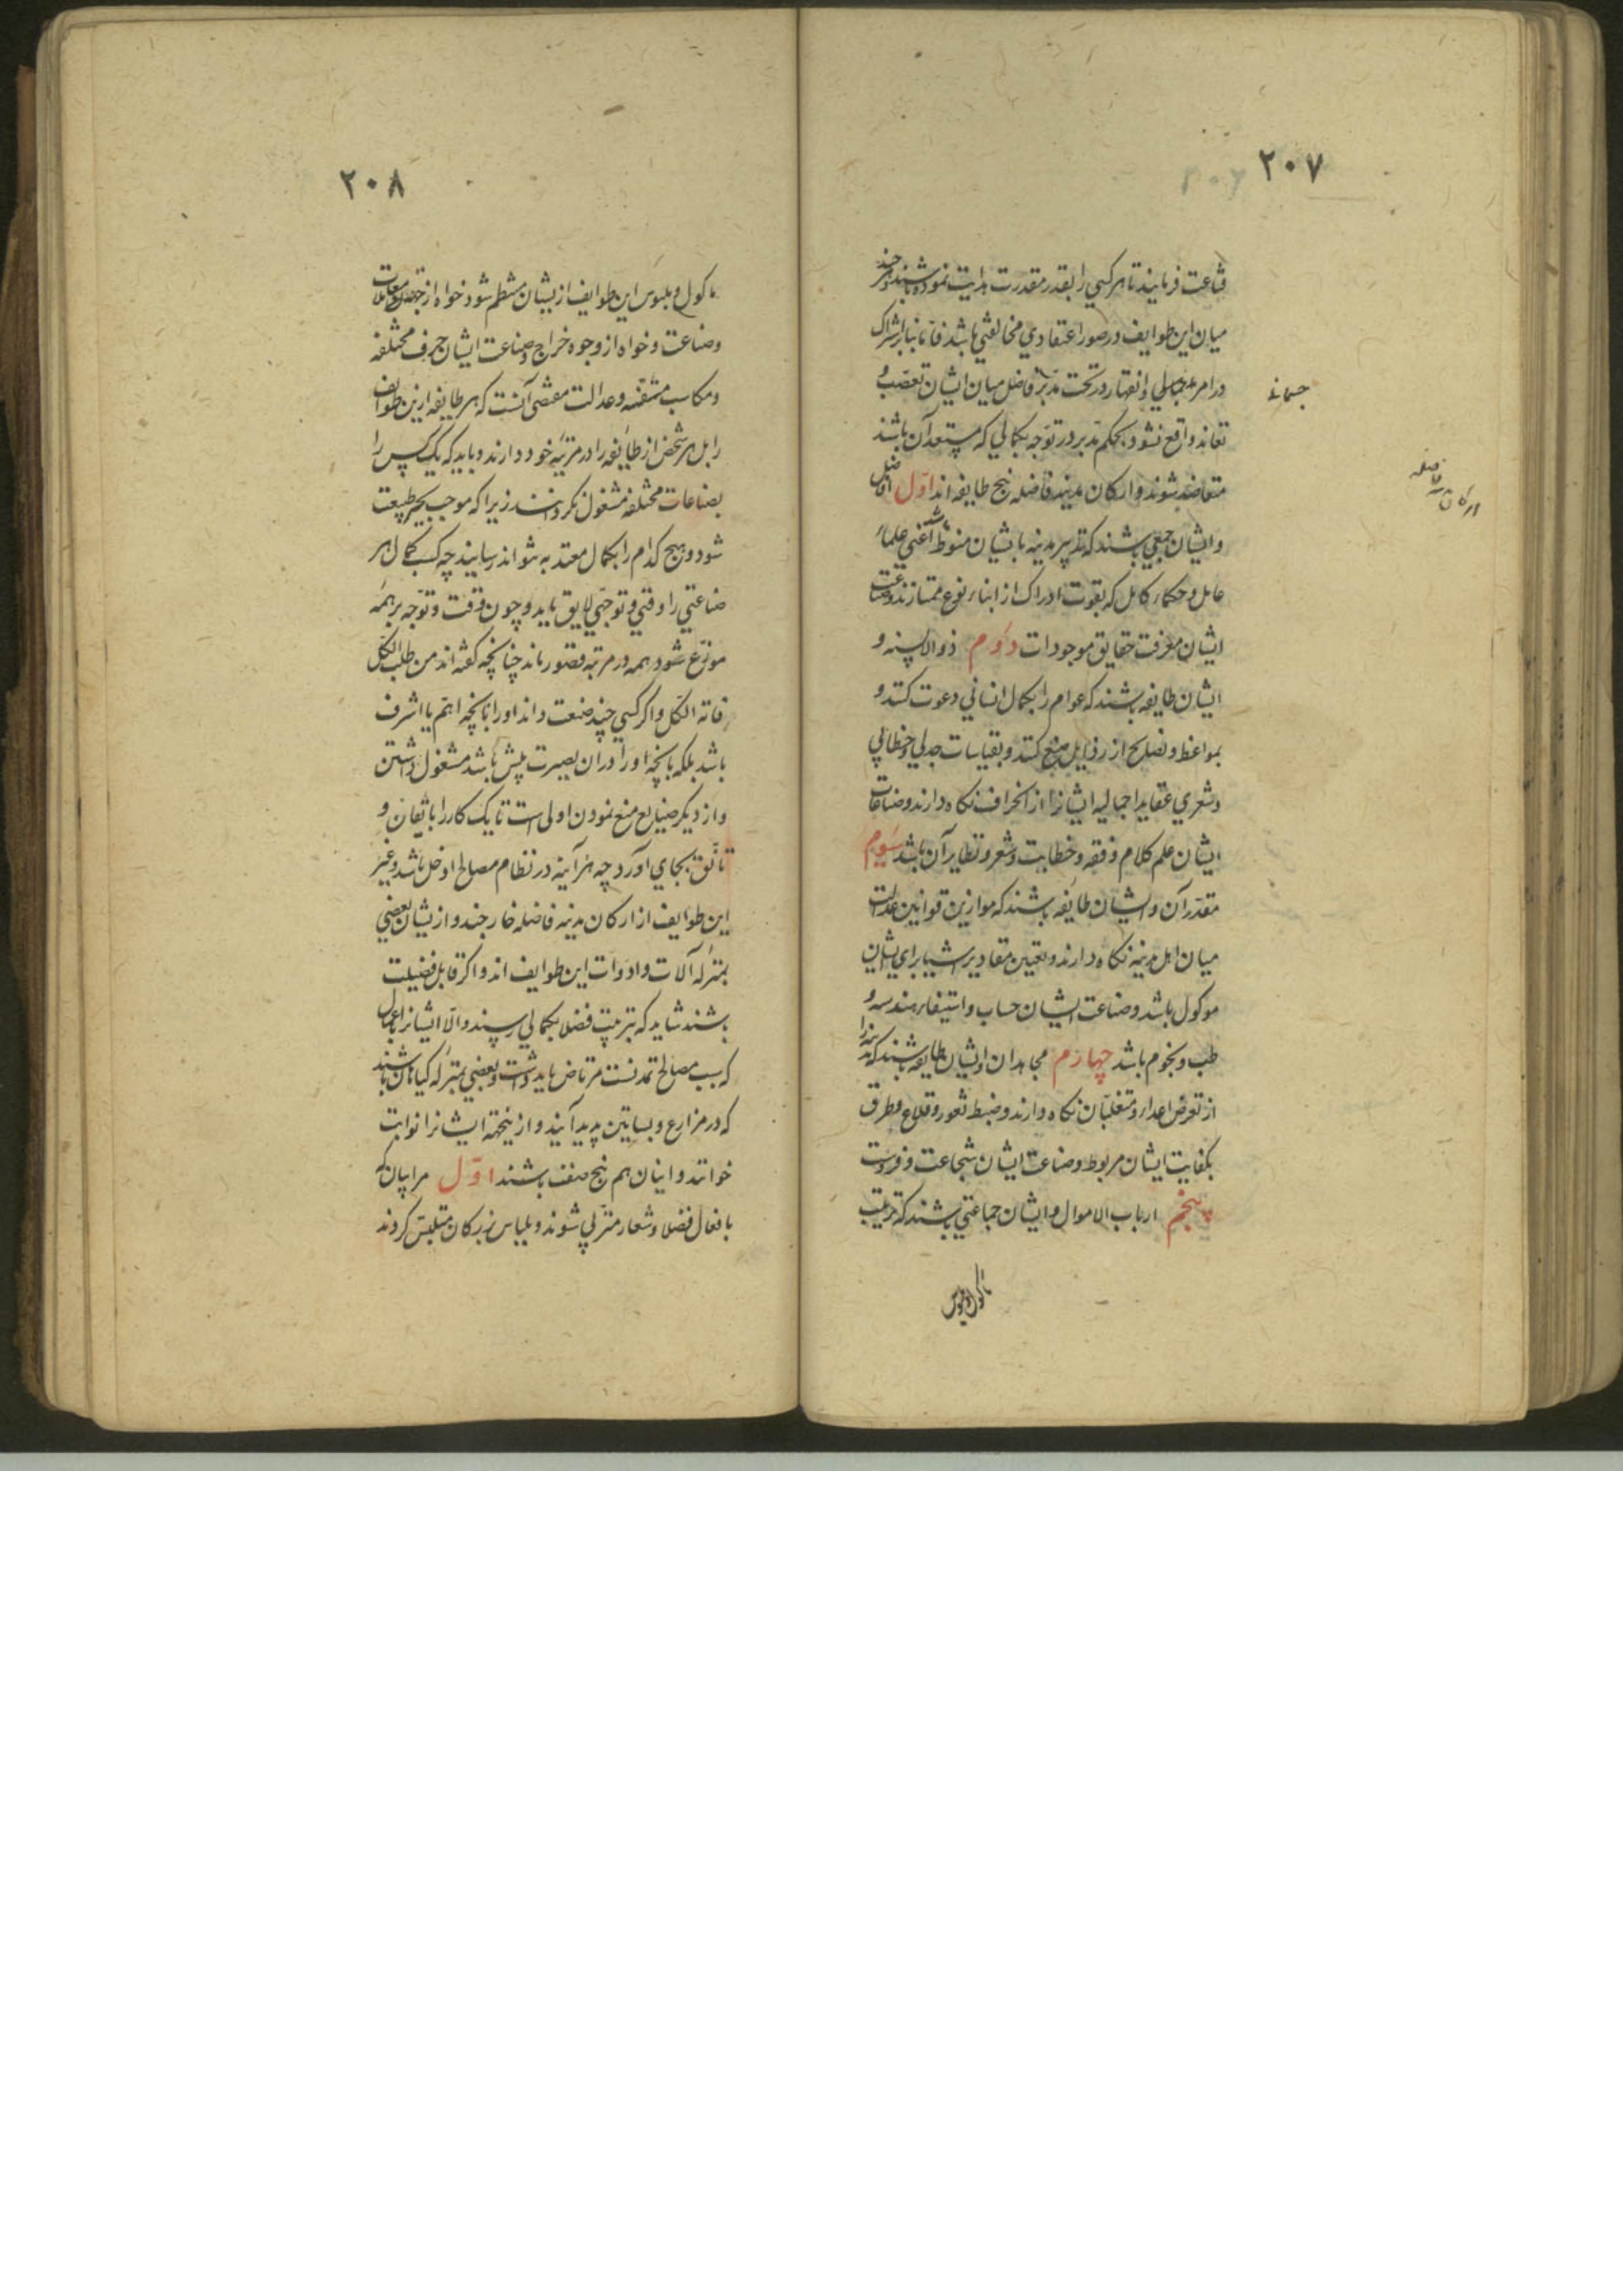 ۲۰۷
قناعت فرمایند تا هر کسی را بقدر مقدرت هدایت نموده باشند و هر چند
میان این طوایف در صور اعتقادی مخالفتی باشد فاما بنابر اشتراک
در امر و انقهار در تحت مدبر فاضل میان ایشان تعصب و
تعاند واقع نشود بحکم مدبر در توجه بکمالی که مستعد آن باشند
متعاضد شوند و ارکان مدینه فاضله پنج طایفه اند اول افاضل
و ایشان جمعی باشند که تدبیر مدینه بایشان منوط باشد اعنی علماء
عامل و حکماء کامل که بقوت ادراک از ابناء نوع ممتازند و صناعت
ایشان معرفت حقایق موجودات دوم ذوالالسنه و
ایشان طایفه باشند که عوام را بکمال انسانی دعوت کنند و
بمواعظ و نصایح از رذایل منع کنند و بقیاسات جدلی و خطابی
و شعری عقاید اجمالیه ایشانرا از انحراف نکاه دارند و صناعات
ایشان علم کلام و فقه و خطابت و شعر و نظایر آن باشد سوم
مقدران و ایشان طایفه باشند که موازین قوانین عدالت
میان اهل مدینه نکاه دارند و تعیین مقادیر اشیا برای ایشان
موکول باشد و صناعت ایشان حساب و استیفاء و هندسه و
طب و نجوم باشد چهارم مجاهدان و ایشان طایفه باشند که مدینه را
از تعرض اعداء و متغلبان نکاه دارند و ضبط ثغور و قلاع و طرق
بکفایت ایشان مربوط و صناعت ایشان شجاعت و فروست
پنجم ارباب الاموال و ایشان جماعتی باشند که ترتیب
ماکول و ملبوس
ارکان مدینه فاضله
۲۰۸
ماکول و ملبوس این طوایف از ایشان منتظم شود خواه از جهت معاملات
و صناعت و خواه از وجوه خراج و صناعت ایشان حرف مختلفه
و مکاسب متفننه و عدالت مقتضی آنست که هر طایفه ازین طوایف
را بل هر شخص از طایفه را در مرتبه خود دارند و باید که یک کس را
بصناعات مختلفه مشغول نکردانند زیرا که موجب تحیر طبیعت
شود و هیچ کدام را بکمال معتد به نتواند رسانید چه کسب کمال هر
صناعتی را وقتی و توجهی لایق باید و چون وقت و توجه بر همه
موزع شود همه در مرتبه قصور ماند چنانچه کفته اند من طلب الکل
فاته الکل و اکر کسی چند صنعت داند او را بانچه اهم یا اشرف
باشد بلکه بانچه او را در آن بصیرت بیش باشد مشغول داشتن
و از دیکر صنایع منع نمودن اولی است تا یک کار را باتقان و
تانق بجای آورد چه هر آینه در نظام مصالح ادخل باشد و غیر
این طوایف از ارکان مدینه فاضله خارجند و از ایشان بعضی
بمنزله آلات و ادوات این طوایف اند و اکر قابل فضیلت
باشند شاید که بتربیت فضلا بکمالی رسند و الا ایشانرا باعمال
که سبب مصالح تمدنست مرتاض باید داشت و بعضی بمنزله کیاهان باشند
که در مزارع و بساتین پدید آیند و ازینجهه ایشانرا نوابت
خوانند و اینان هم پنج صنف باشند اول مراییان که
بافعال فضلا و شعار متزیی شوند و بلباس بزرکان متلبس کردند